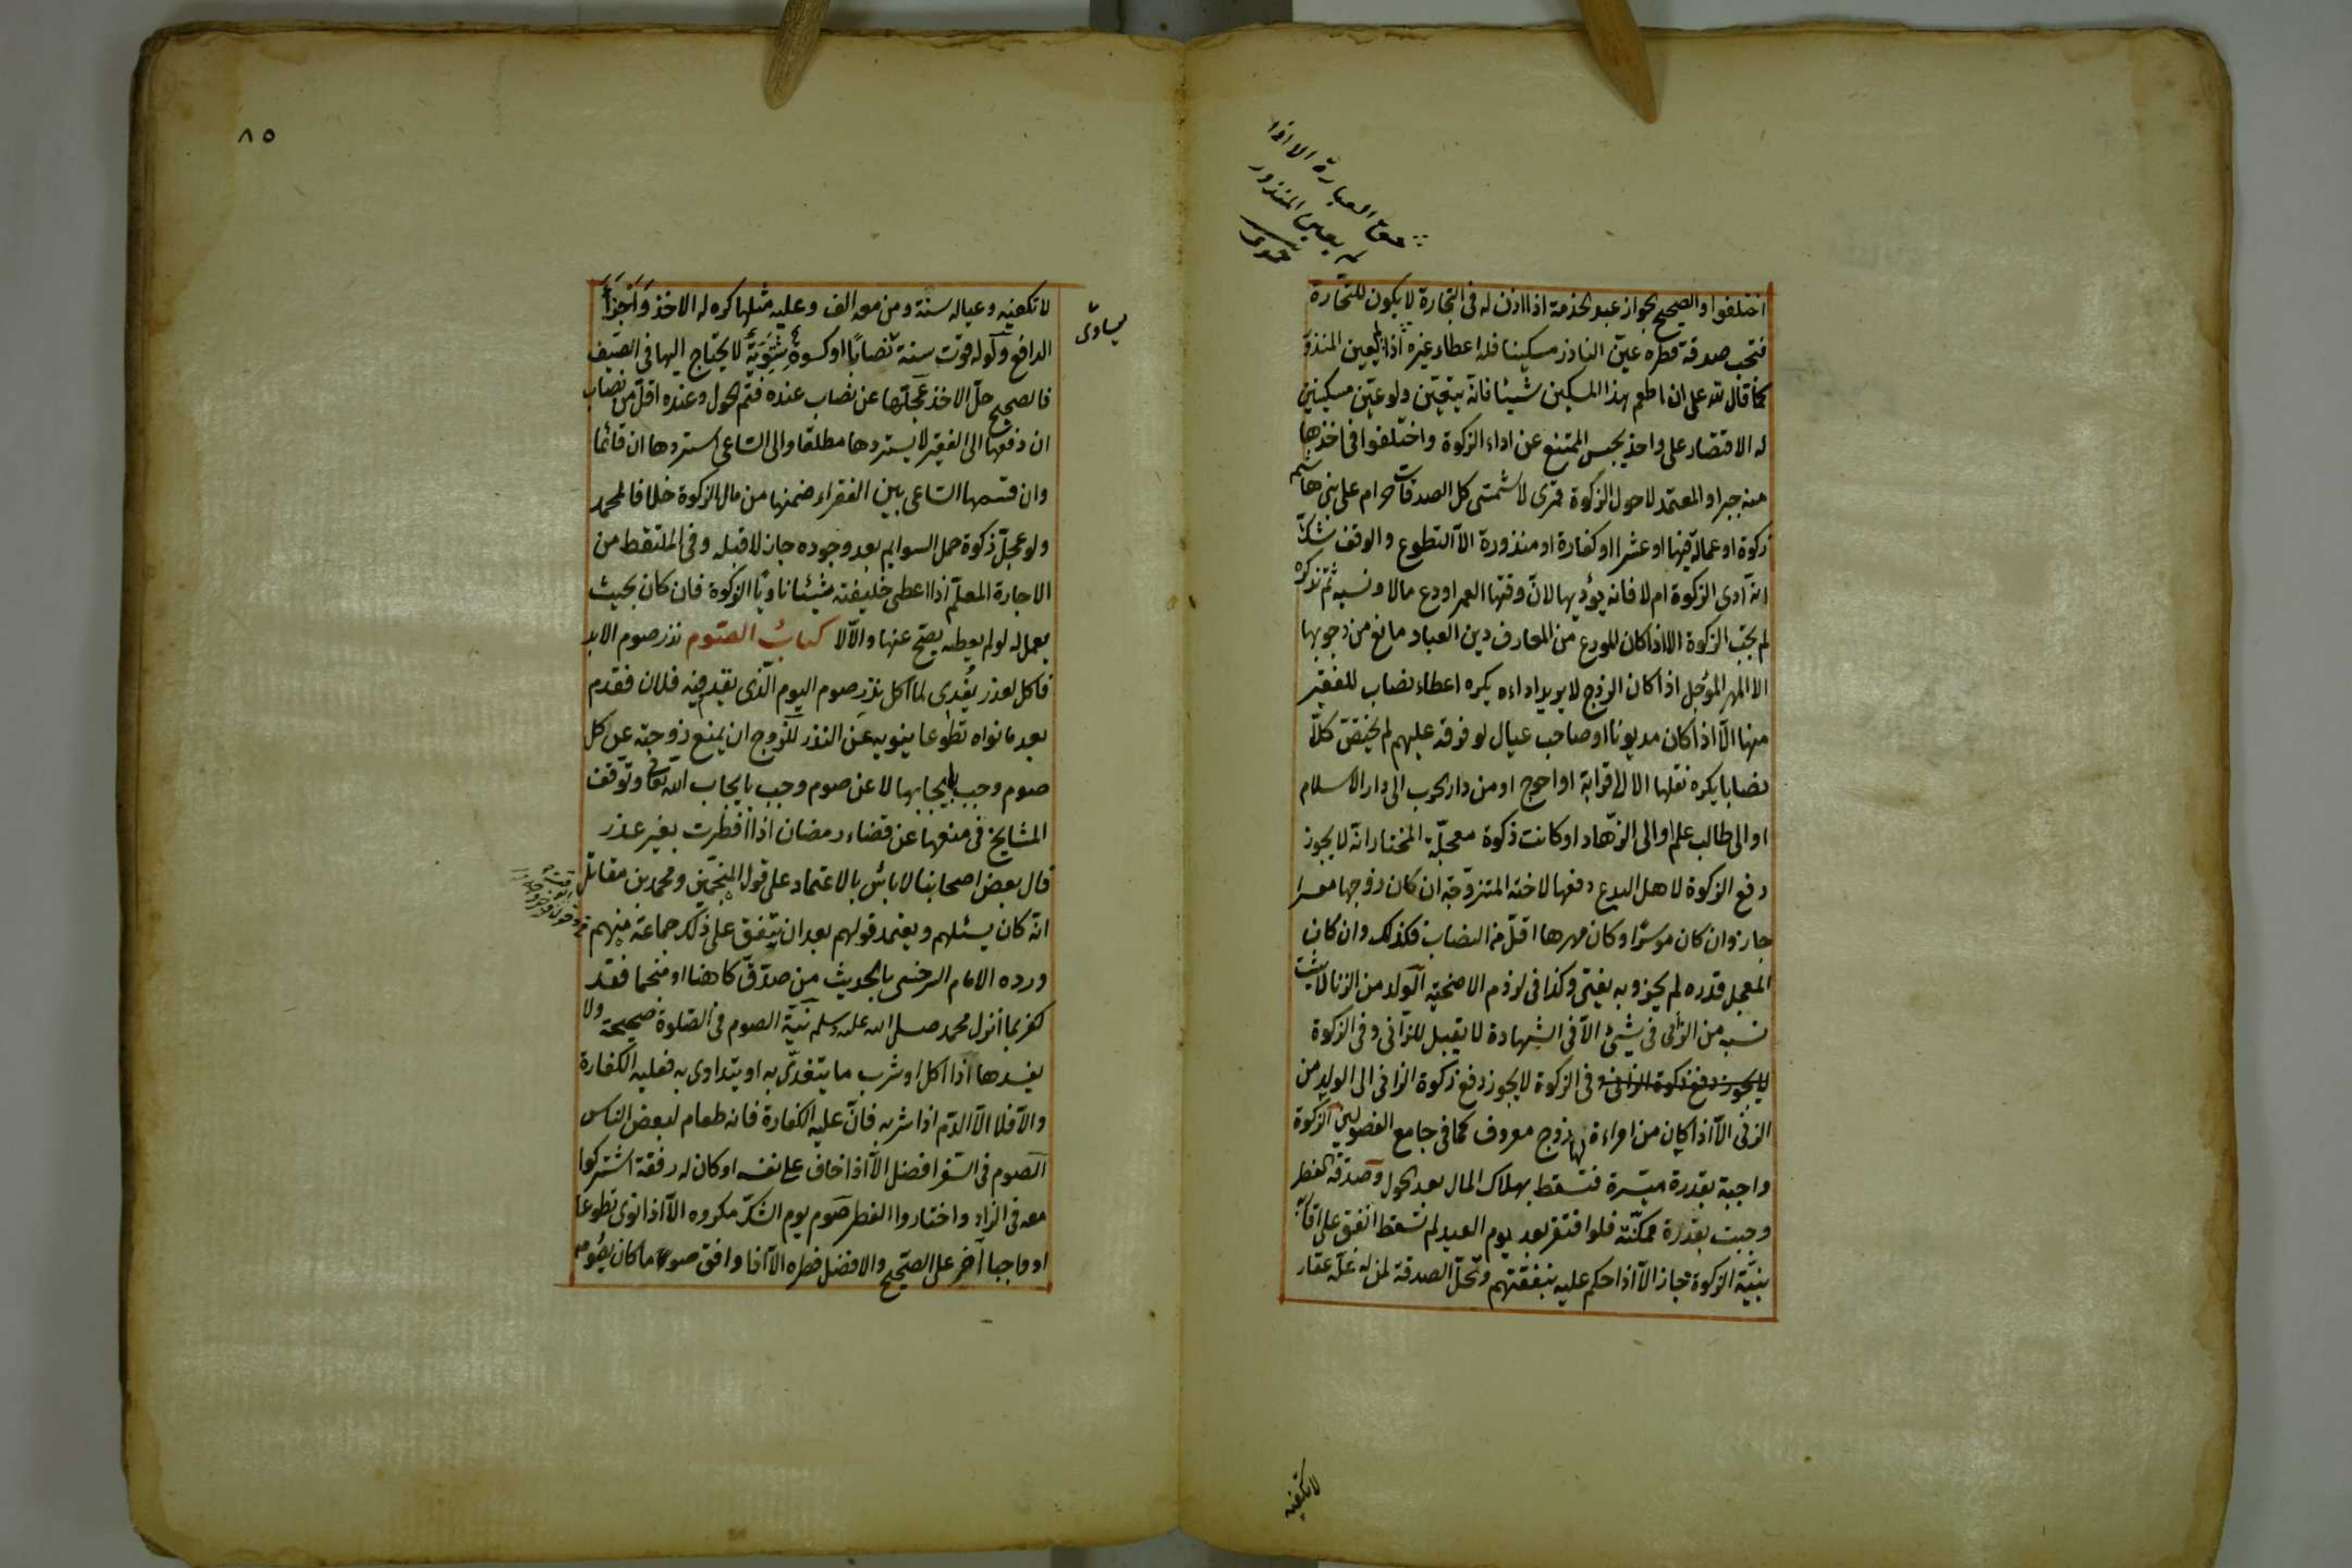 حق العبارة الا اذا
لم يعين المنذور
حموى
اختلفوا والصحيح الجواز عبد الخدمة اذا اذن له فى التجارة لا يكون للتجارة
فتجب صدقة فطره عين الناذر مسكينا فله اعطاء غيره اذا لم يعين المنذور
كما قال لله على ان اطعم هذا المسكين شيئا فانه يتعين ولو عين مسكينين
له الاقتصار على واحد يحبس الممتنع عن اداء الزكوة واختلفوا فى اخذها
منه جبرا والمعتمد لا حول الزكوة قمرى لا شمسى كل الصدقات حرام على بنى هاشم
زكوة او عمالة فيها او عشرا او كفارة او منذورة الا التطوع والوقف شك
انه ادى الزكوة ام لا فانه يؤديها لان وقتها العمر اودع مالا ونسيه ثم تذكره
لم تجب الزكوة الا اذا كان المودع من المعارف دين العباد مانع من وجوبها
الا المهر المؤجل اذا كان الزوج لا يريد اداءه يكره اعطاء نصاب للفقير
منها الا اذا كان مديونا او صاحب عيال لو فرقه عليهم لم يخص كلا
نصابا يكره نقلها الا الى قرابة او احوج او من دار الحرب الى دار الاسلام
او الى طالب علم او الى الزهاد او كانت زكوة معجلة المختار انه لا يجوز
دفع الزكوة لاهل البدع دفعها لاخته المتزوجة ان كان زوجها معسرا
جاز وان كان موسرا وكان مهرها اقل من النصاب فكذلك وان كان
المعجل قدره لم يجز وبه يفتى وكذا فى لزوم الاضحية الولد من الزنا لا يثبت
نسبه من الزانى فى شيئ الا فى الشهادة لا يقبل للزانى وفى الزكوة
لا يجوز دفع زكوة الزانى وفى الزكوة لا يجوز دفع زكوة الزانى الى الولد من
الزنى الا اذا كان من امراءة لها زوج معروف كما فى جامع الفصولين الزكوة
واجبة بقدرة ميسرة فتسقط بهلاك المال بعد الحول وصدقة الفطر
وجبت بقدرة ممكنة فلو افتقر بعد يوم العيد لم تسقط انفق على اقاربه
بنية الزكوة جاز الا اذا حكم عليه بنفقتهم وتحل الصدقة لمن له غلة عقار
لا تكفيه
٨٥
يساوى
لا تكفيه وعياله سنة ومن معه الف وعليه مثلها كره له الاخذ واجزأ
الدافع ولو له قوت سنة نصابا او كسوة شتوية لا يحتاج اليها فى الصيف
فالصحيح حل الاخذ عجلها عن نصاب عنده فتم الحول وعنده اقل من نصاب
ان دفعها الى الفقير لا يستردها مطلقا والى الساعى استردها ان قائما
وان قسمها الساعى بين الفقراء ضمنها من مال الزكوة خلافا لمحمد
ولو عجل زكوة حمل السوايم بعد وجوده جاز لا قبله وفى الملتقط من
الاجارة المعلم اذا اعطى خليفته شيئا ناويا الزكوة فان كان بحيث
يعمل له لو لم يعطه يصح عنها والا لا كتاب الصوم نذر صوم الابد
فاكل لعذر يفدى لما اكل نذر صوم اليوم الذى يقدم فيه فلان فقدم
بعد ما نواه تطوعا ينويه عن النذر للزوج ان يمنع زوجته عن كل
صوم وجب بايجابها لا عن صوم وجب بايجاب الله تعالى وتوقف
المشايخ فى منعها عن قضاء رمضان اذا افطرت بغير عذر
قال بعض اصحابنا لا بائس بالاعتماد على قول المنجمين ومحمد بن مقاتل
انه كان يسئلهم ويعتمد قولهم بعد ان يتفق على ذلك جماعة منهم
ورده الامام السرخسى بالحديث من صدق كاهنا او منجما فقد
كفر بما انزل محمد صلى الله عليه وسلم نية الصوم فى الصلوة صحيحة ولا
يفسدها اذا اكل او شرب ما يتغدى به او يتداوى به فعليه الكفارة
والا فلا الا الدم اذا شربه فان عليه الكفارة فانه طعام لبعض الناس
الصوم فى السفر افضل الا اذا خاف على نفسه او كان له رفقة اشتركوا
معه فى الزاد واختاروا الفطر صوم يوم الشك مكروه الا اذا نوى تطوعا
او واجبا آخر على الصحيح والافضل فطره الا اذا وافق صوما كان يصومه